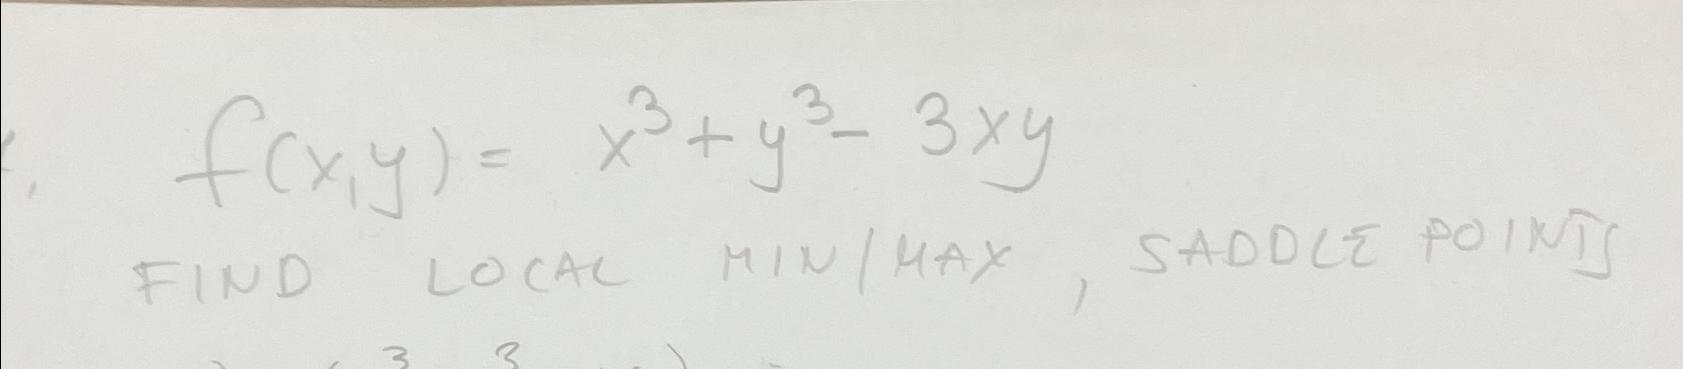 f(x,y) = x³ + y³ - 3xy
FIND LOCAL MIN/MAX, SADDLE POINTS